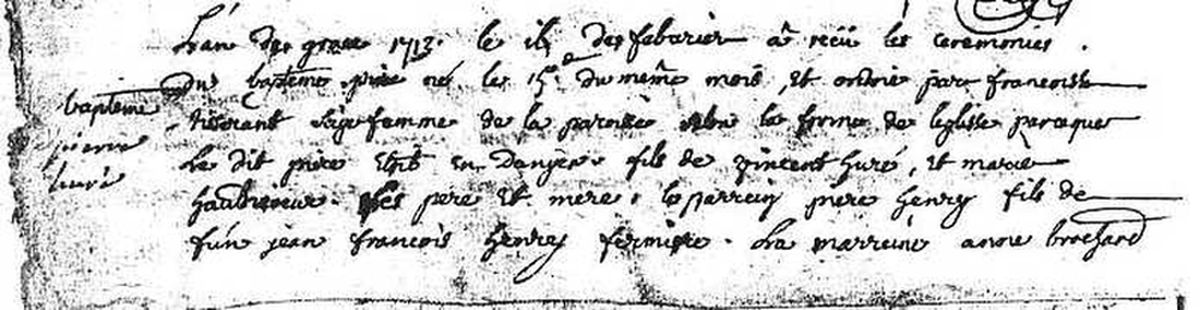 L'an de grace 1713. le 16 de febvrier a receu les ceremonies.
du bapteme pière né le 15e du meme mois, et ondoié par francoise
tisserant sage femme de la paroisse selon la forme de leglisse parceque
le dit pière etoit en danger. fils de vincent huré, et marie
ses pere et mere, le parrein pière henry fils de
fun jean francois henry fermier. La marreine anne brochard
bapteme
pierre
huré